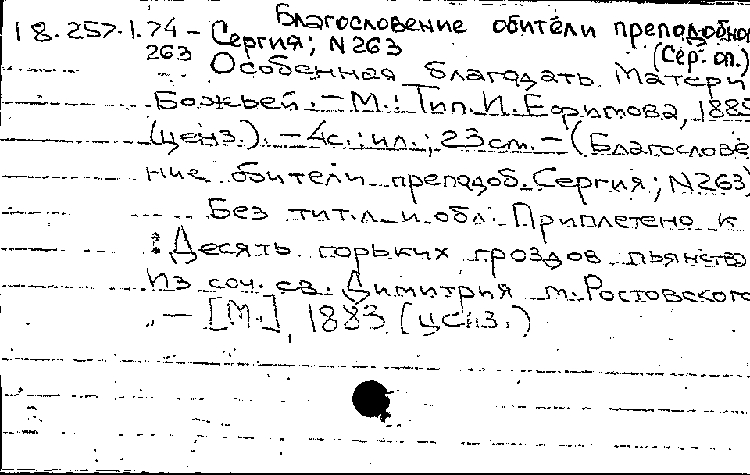 Благословение обители преподобно
18.257.1.74 - Сергия; N263
263 (Сер. оп.)
Особенная благодать Матери
Божьей. - М.: Тип. И. Ефимова, 1883
(ценз.). - 4с.: ил.; 23см. - (Благослове
ние обители преподоб. Сергия; N263)
Без тит.л. и обл. Приплетено к
: Десять горьких гроздов пьянство
Из соч. св. Димитрия м. Ростовского
. - [М.], 1883 (ценз.)